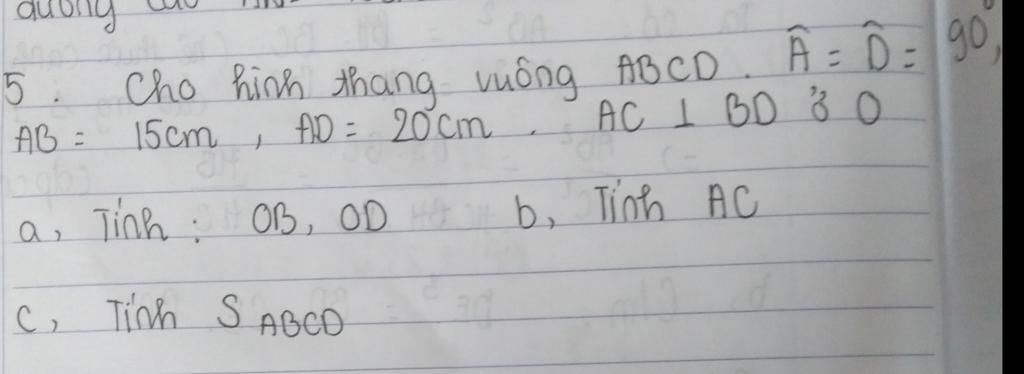 đường cao
5. Cho hình thang vuông ABCD. Â = D̂ = 90°,
AB = 15cm, AD = 20cm. AC ⊥ BD ở O
a, Tính : OB, OD b, Tính AC
c, Tính S ABCD